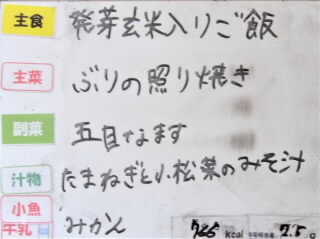 主食 発芽玄米入りご飯
主菜 ぶりの照り焼き
副菜 五目なます
汁物 たまねぎと小松菜のみそ汁
小魚
牛乳 みかん
kcal g